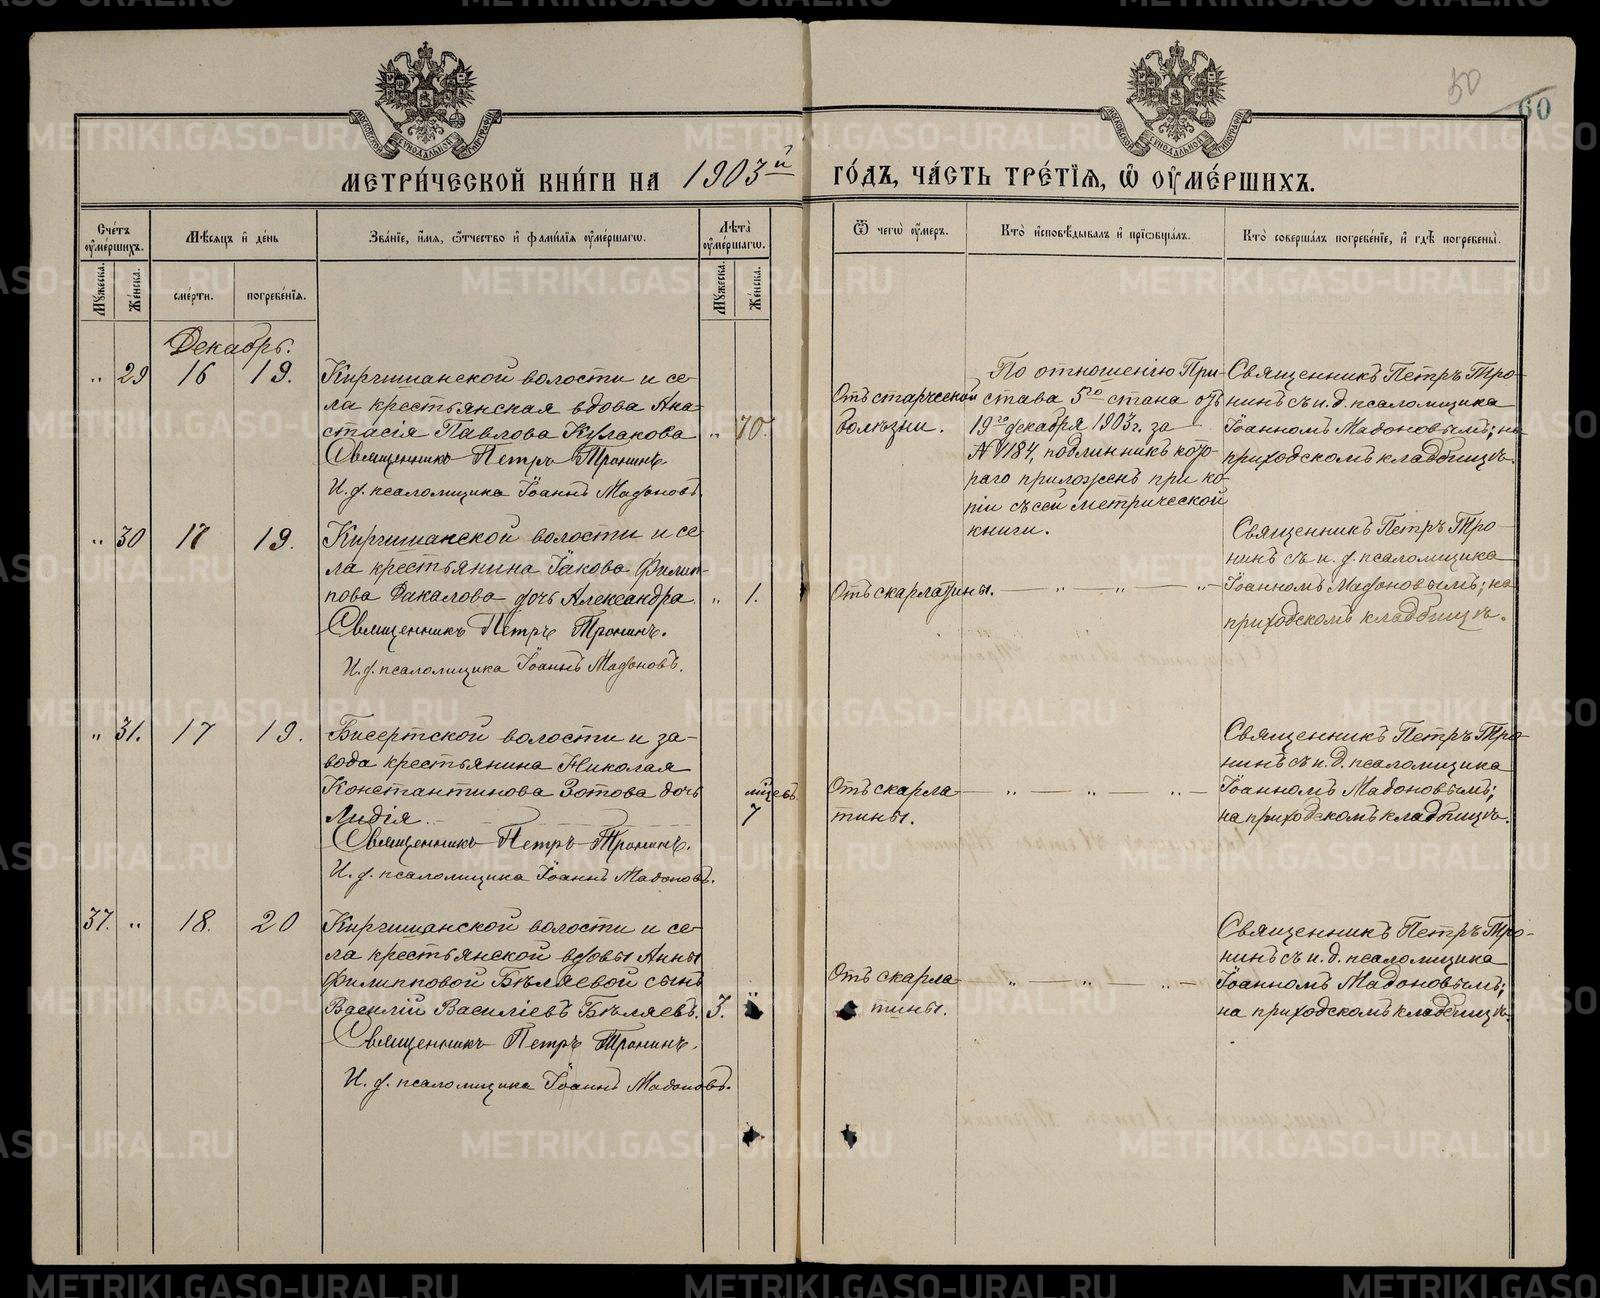 50
60
МЕТРИ́ЧЕСКОЙ КНИ́ГИ НА 1903й ГО́ДЪ, ЧА́СТЬ ТРЕ́ТІѦ, Ѡ ОУМЕ́РШИХЪ.
Сче́тъ оуме́ршихъ.
Мѣ́сѧцъ и де́нь
Зва́нїе, и́мѧ, ѻ́тчество и фами́лїѧ оуме́ршагѡ.
Лѣ́та оуме́ршагѡ.
Ѿ чегѡ̀ оу́меръ.
Кто̀ и҆сповѣ́дывалъ и прїѡбща́лъ.
Кто̀ соверша́лъ погребе́нїе, и гдѣ̀ погребены̀.
Мꙋ́жеска.
Же́нска.
сме́рти.
погребе́нїѧ.
Мꙋ́жеска.
Же́нска.
Декабрь.
„ 29 16 19.
Киргишанской волости и се-
ла крестьянская вдова Ана-
стасія Павлова Кулакова „ 70.
Священникъ Петръ Тронинъ.
И. д. псаломщика Іоаннъ Мадоновъ.
Отъ старческой
болѣзни.
По отношенію При-
става 5го стана отъ
19го декабря 1903 г. за
№ 4184, подлинникъ кото-
раго приложенъ при ко-
піи съ сей метрической
книги.
Священникъ Петръ Тро-
нинъ съ и. д. псаломщика
Іоанномъ Мадоновымъ; на
приходскомъ кладбищѣ.
„ 30 17 19.
Киргишанской волости и се-
ла крестьянина Іакова Филип-
пова Закалова дочь Александра. „ 1.
Священникъ Петръ Тронинъ.
И. д. псаломщика Іоаннъ Мадоновъ.
Отъ скарлатины. — „ — „ — „ —
Священникъ Петръ Тро-
нинъ съ и. д. псаломщика
Іоанномъ Мадоновымъ; на
приходскомъ кладбищѣ.
„ 31. 17 19.
Бисертской волости и за-
вода крестьянина Николая
Константинова Зотова дочь
Лидія.
мѣцевъ
7
Священникъ Петръ Тронинъ.
И. д. псаломщика Іоаннъ Мадоновъ.
Отъ скарла- — „ — „ — „ —
тины.
Священникъ Петръ Тро-
нинъ съ и. д. псаломщика
Іоанномъ Мадоновымъ;
на приходскомъ кладбищѣ.
37. „ 18. 20
Киргишанской волости и се-
ла крестьянской вдовы Анны
Филипповой Бѣляевой сынъ
Василій Василіевъ Бѣляевъ. 3. „
Священникъ Петръ Тронинъ.
И. д. псаломщика Іоаннъ Мадоновъ.
Отъ скарла- — „ — „ — „ —
тины.
Священникъ Петръ Тро-
нинъ съ и. д. псаломщика
Іоанномъ Мадоновымъ;
на приходскомъ кладбищѣ.
METRIKI.GASO-URAL.RU